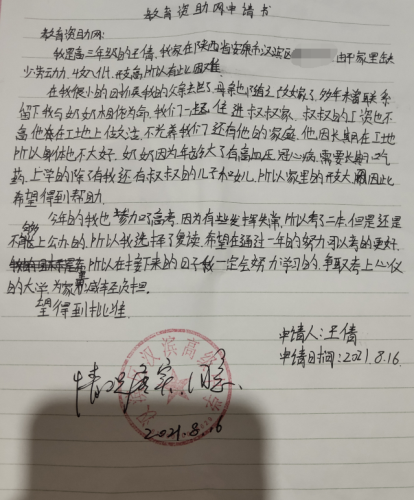 教育资助网申请书
教育资助网:
我是高三年级的王倩,我家在陕西省安康市汉滨区 由于家里缺
少劳动力,收入低,开支高所以有此困难
在我很小的时候我的父亲去世了,母亲也随之改嫁了,多年未曾联系
留下我与奶奶相依为命,我们一起住进叔叔家,叔叔的工资也不
高他需在工地上住交活,不光养我们还有他的家庭,他因长期在工地
所以身体也不大好,奶奶因为年龄大了有高血压,冠心病,需要长期吃
药,上学的除了有我还有叔叔的儿子和女儿,所以家里的开支大,因此
希望得到帮助.
今年的我也参加了高考,因为有些发挥失常,所以考了二本,但是还是
不能够上公办的,所以我选择了复读,希望在通过一年的努力可以考的更好,
所以在接下来的日子我一定会努力学习的,争取考上心仪
的大学为家里减轻负担.
望得到批准.
申请人:王倩
申请日期:2021.8.16.
情况属实,同意.
2021.8.16
汉滨高级中学